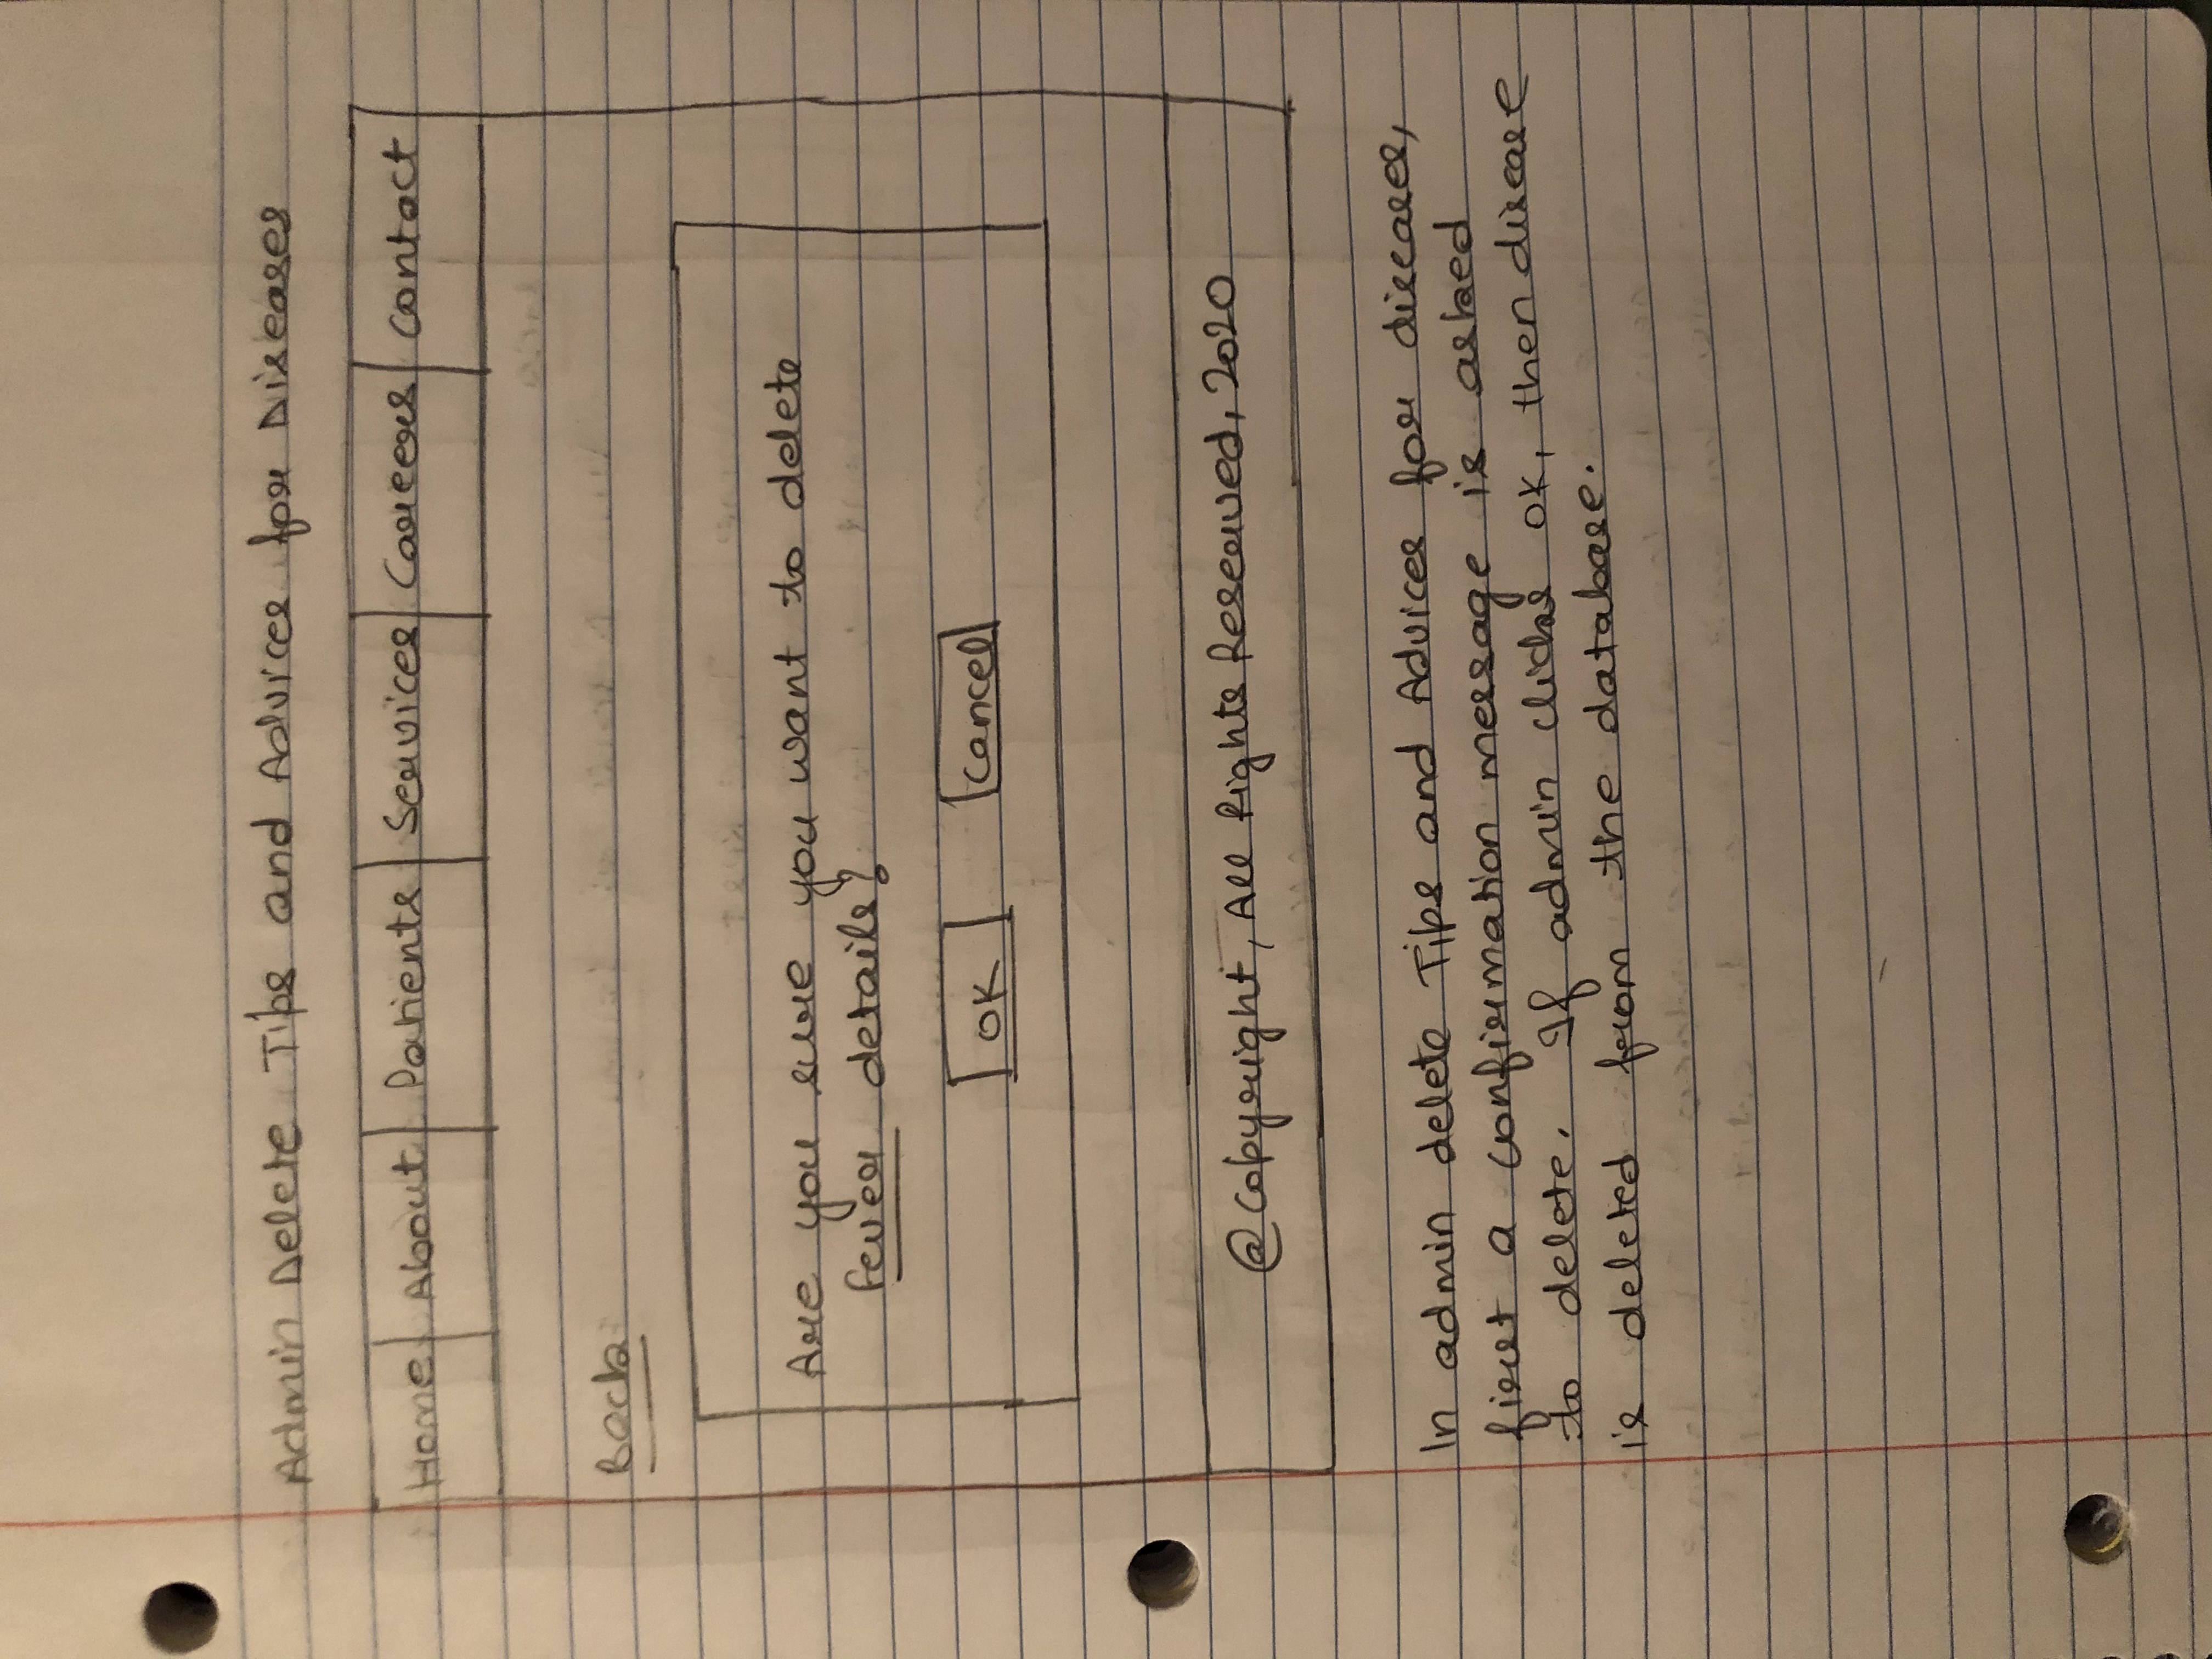 Admin Delete Tips and Advices for Diseases
Home About Patients Services Careers Contact
Back
Are you sure you want to delete
fever details?
OK Cancel
@Copyright, All Rights Reserved, 2020
In admin delete Tips and Advices for diseases,
first a confirmation message is asked
to delete. If admin clicks OK, then disease
is deleted from the database.